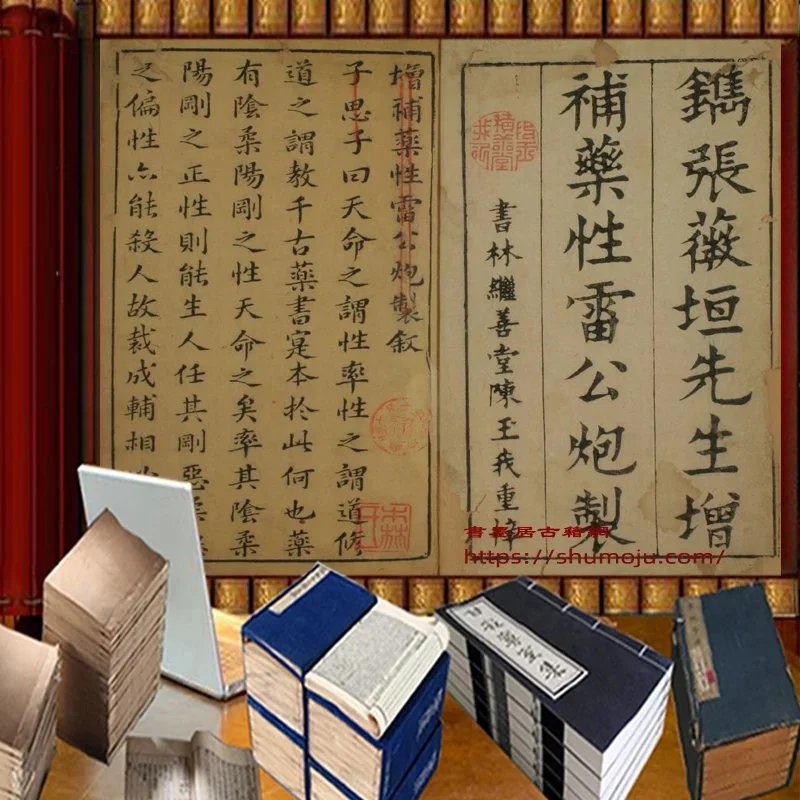 鐫張薇垣先生增
補藥性雷公炮製
書林繼善堂陳玉我重梓
增補藥性雷公炮製叙
子思子曰天命之謂性率性之謂道修
道之謂教千古藥書寔本扵此何也藥
有陰柔陽剛之性天命之矣率其陰柔
陽剛之正性則能生人任其剛惡柔
之偏性亦能殺人故裁成輔相
書墨居古籍網
https://shumoju.com/